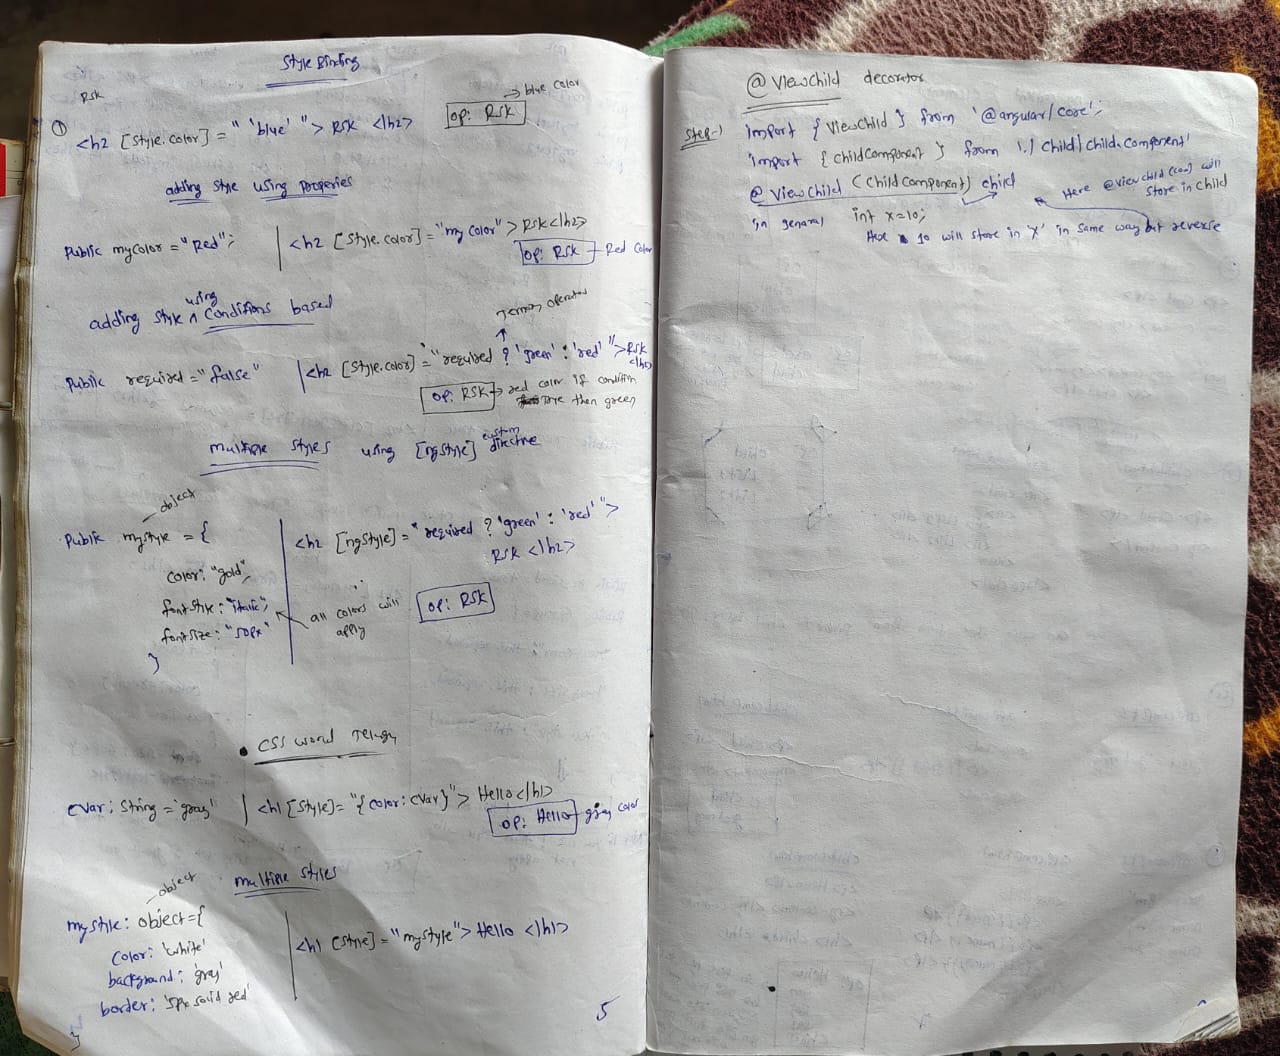 Style Binding
RSK
→ blue color
① <h2 [style.color] = " 'blue' "> RSK </h2>
op: RSK
adding style using properies
Public myColor = "Red"; | <h2 [style.color] = "my color" > RSK </h2>
op: RSK → Red Color
using
adding style ∧ Conditions based
Ternary operator
Public required = "false" | <h2 [style.color] = "required ? 'green' : 'red' "> RSK </h2>
op: RSK → red color if condition
true then green
multiple styles using [ngStyle] custom directive
object
Public mystyle = {
color: "gold",
fontstyle: "italic",
fontsize: "50px"
}
<h2 [ngStyle] = "required ? 'green' : 'red' ">
RSK </h2>
all colors will
apply
op: RSK
• CSS world Telugu
cVar: string = 'gray' | <h1 [style]= "{color: cVar}"> Hello </h1>
op: Hello → gray color
multiple styles
object
mystyle: object = {
color: 'white'
background: 'gray'
border: '5px solid red'
}
<h1 [style] = "mystyle"> Hello </h1>
5
@ViewChild decorator
Step-1 import { ViewChild } from '@angular/core';
import { childComponent } from './child/child.component'
@ViewChild (ChildComponent) child
Here @viewchild (com) will
store in child
in genaral int x=10;
Here 10 will store in 'x' in same way but reverse